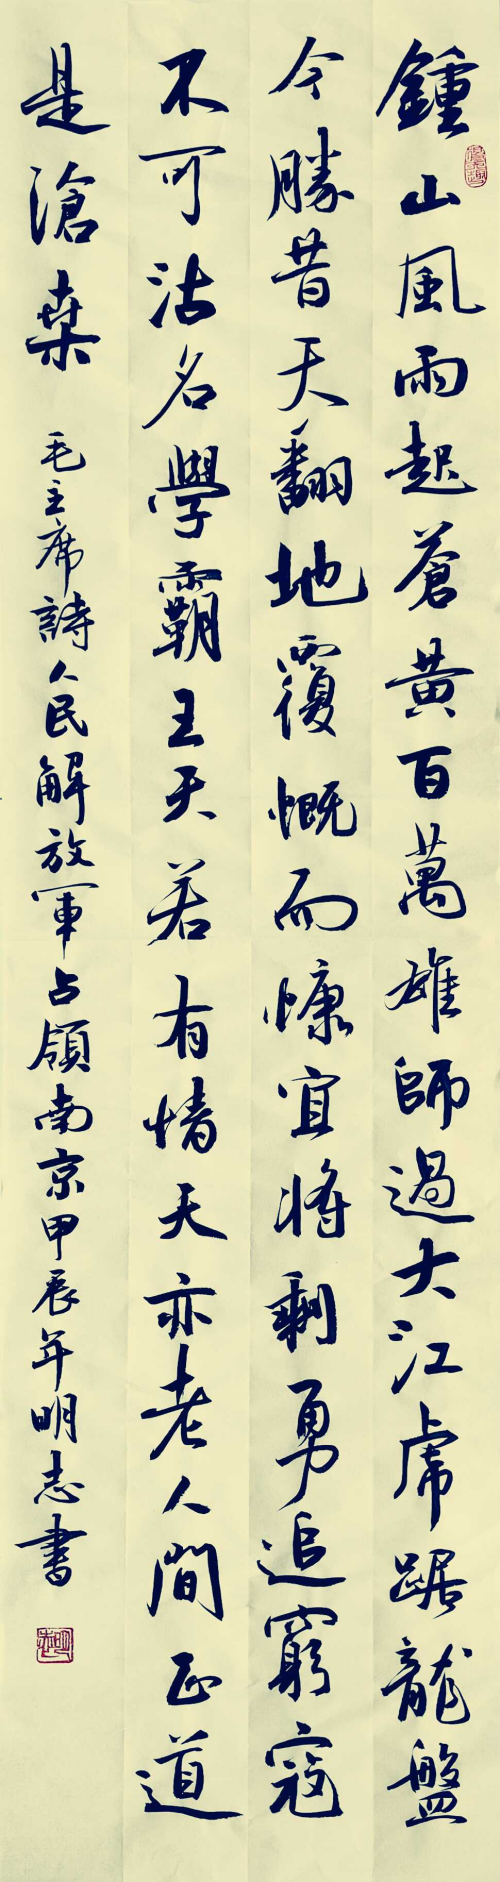 鍾山風雨起蒼黃百萬雄師過大江虎踞龍盤
今勝昔天翻地覆慨而慷宜將剩勇追窮寇
不可沽名學霸王天若有情天亦老人間正道
是滄桑 毛主席詩人民解放軍占領南京甲辰年明志書